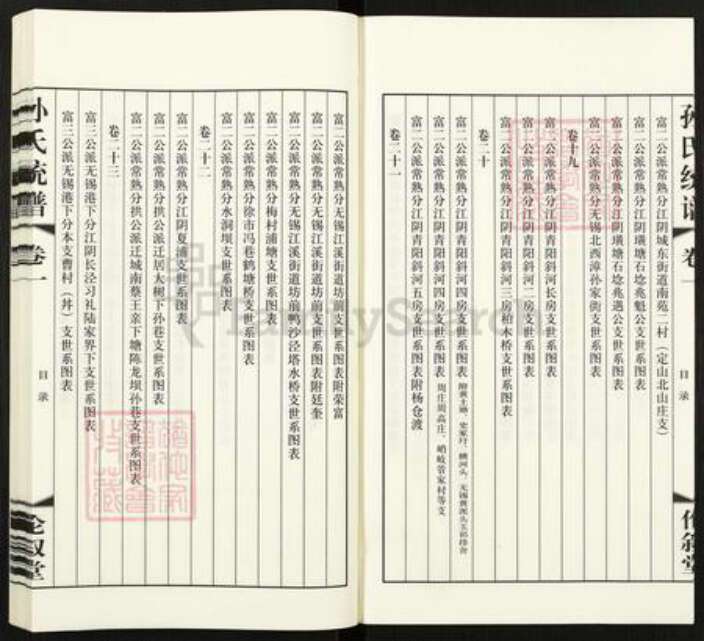 孙氏统谱 卷一 目录 伦叙堂
富二公派常熟分江阴城东街道南苑二村（定山北山庄支）
富二公派常熟分江阴璜塘石埝兆魁公支世系图表
富二公派常熟分江阴璜塘石埝兆遇公支世系图表
富二公派常熟分无锡北西漳孙家街支世系图表
卷十九
富二公派常熟分江阴青阳斜河长房支世系图表
富二公派常熟分江阴青阳斜河二房支世系图表
富二公派常熟分江阴青阳斜河三房柏木桥支世系图表
卷二十
富二公派常熟分江阴青阳斜河四房支世系图表
富二公派常熟分江阴青阳斜河四房支世系图表 周庄周高庄、峭岐管家村等支
富二公派常熟分江阴青阳斜河五房支世系图表附杨仓渡
卷二十一
富二公派常熟分无锡江溪街道坊前支世系图表附荣富
富二公派常熟分无锡江溪街道坊前支世系图表附廷奎
富二公派常熟分无锡江溪街道坊前鸭沙泾塔水桥支世系图表
富二公派常熟分梅村浦塘支世系图表
富二公派常熟分徐市冯巷鹤塘桥支世系图表
富二公派常熟分水洞坝支世系图表
卷二十二
富二公派常熟分江阴夏浦支世系图表
富二公派常熟分拱公派迁居大树下孙巷支世系图表
富二公派常熟分拱公派迁城南蔡王亲下塘陈龙坝孙巷支世系图表
卷二十三
富三公派无锡港下分江阴长泾习礼陆家界下支世系图表
富三公派无锡港下分本支曹村（圤）支世系图表
孙氏统谱 卷一 目录 伦叙堂
FamilySearch